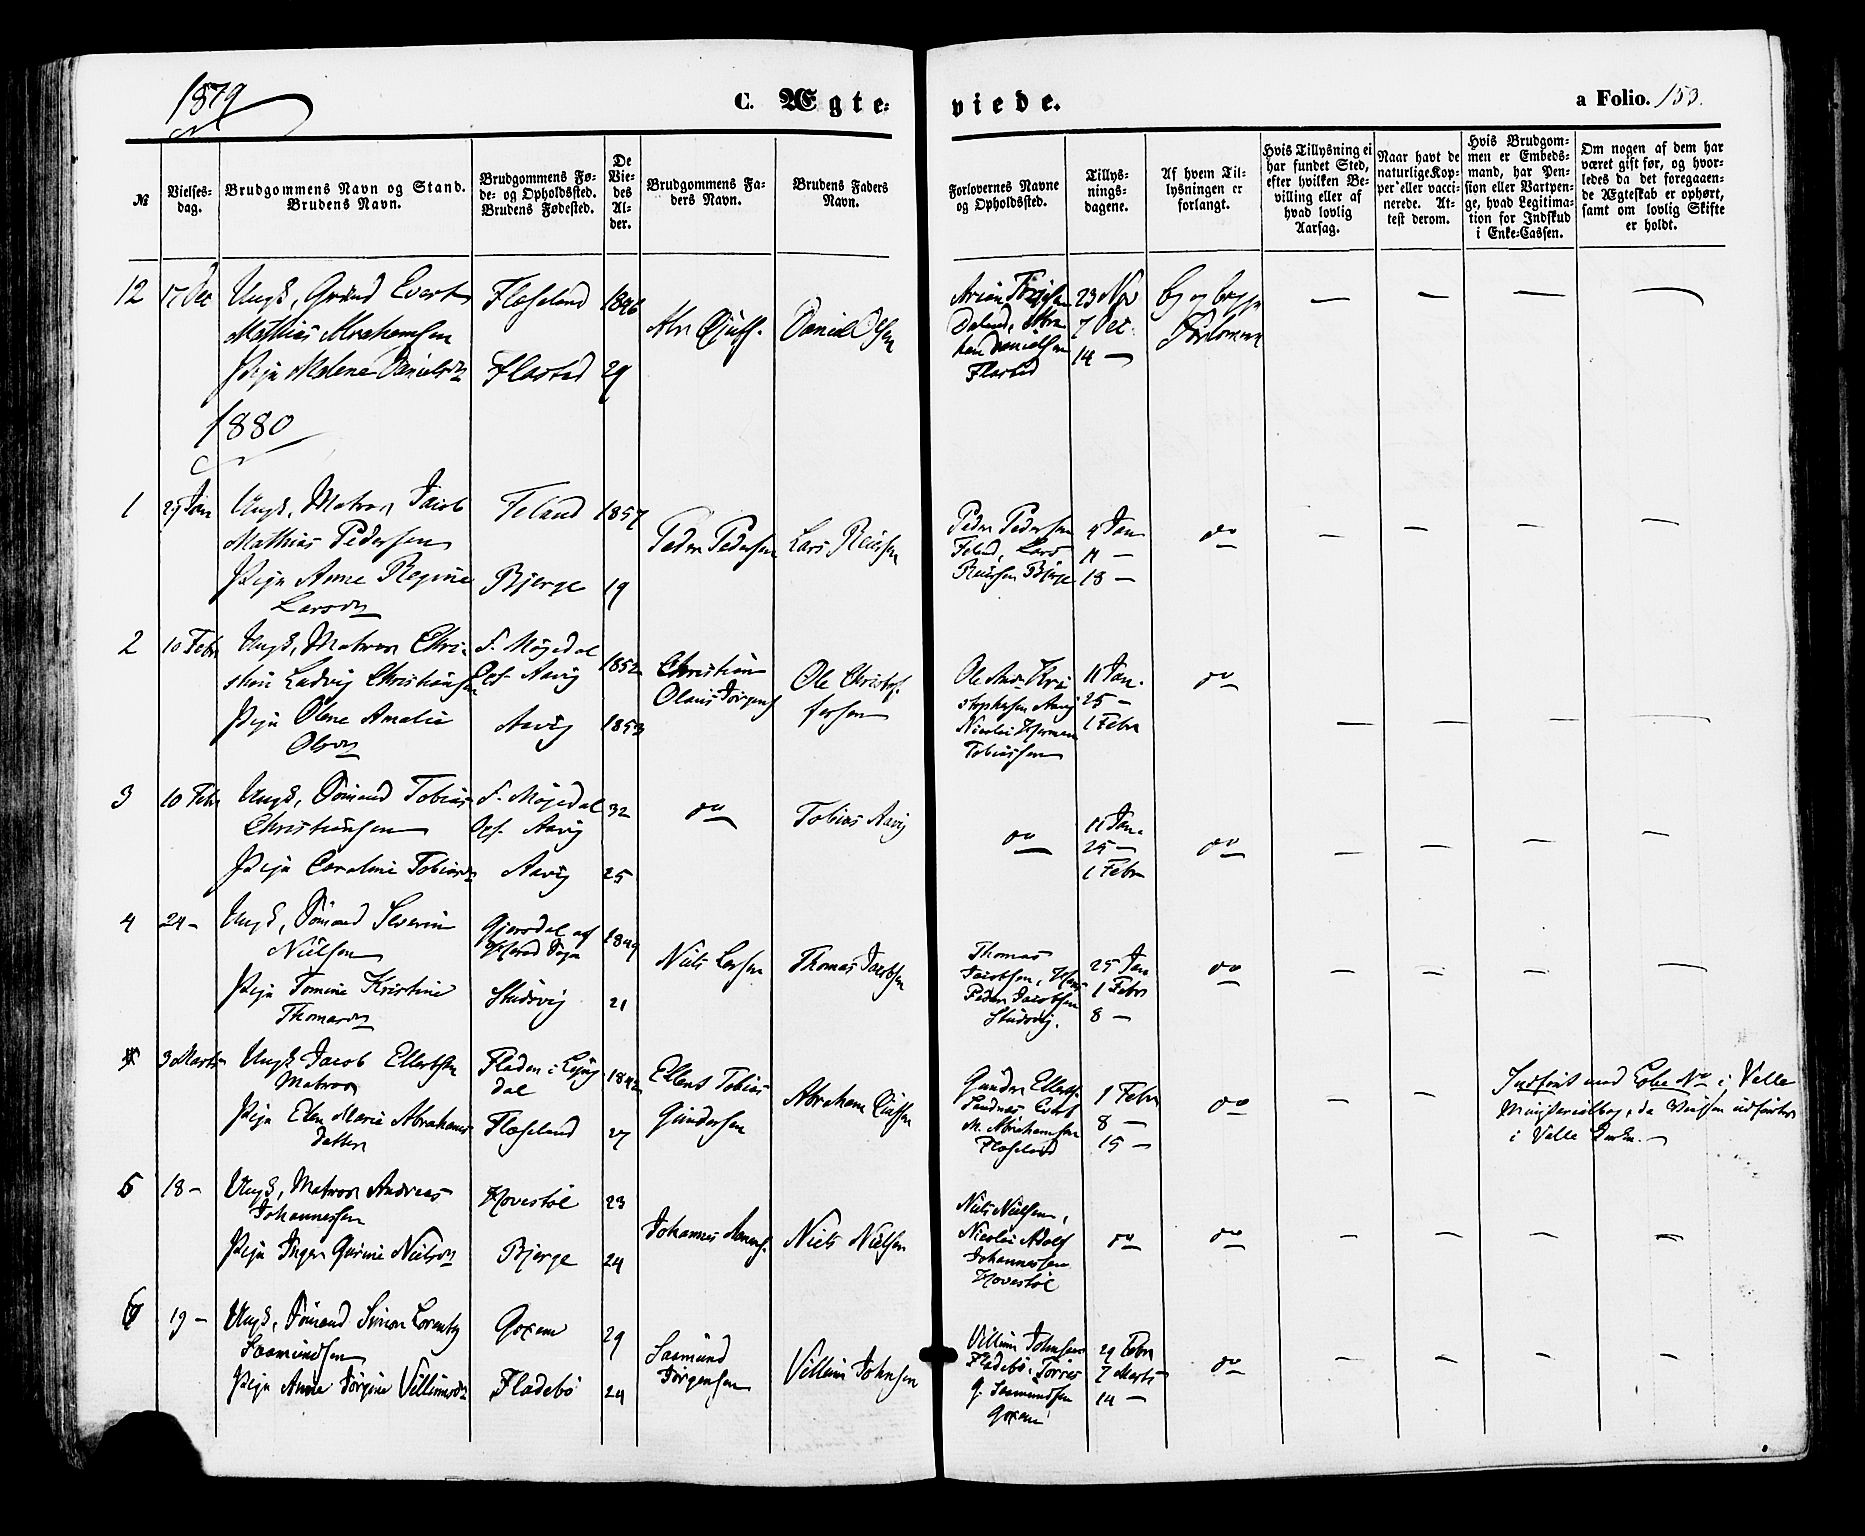 1879
C. Ægte=
viede.
a Folio. 153.
№
Vielses-
dag.
Brudgommens Navn og Stand.
Brudens Navn.
Brudgommens Fø-
de- og Opholdssted.
Brudens Fødested.
De
Vie-
des
Al-
der.
Brudgommens Fa-
ders Navn.
Brudens Faders
Navn.
Forlovernes Navne
og Opholdssted.
Tillys-
nings-
dagene.
Af hvem Til-
lysningen er
forlangt.
Hvis Tillysning ei
har fundet Sted,
efter hvilken Be-
villing eller af
hvad lovlig
Aarsag.
Naar havt de
naturlige Kop-
per eller vacci-
nerede. At-
test derom.
Hvis Brudgom-
men er Embeds-
mand, har Pen-
sion eller Vartpen-
ge, hvad Legitima-
tion for Indskud
i Enke-Cassen.
Om nogen af dem har
været gift før, og hvor-
ledes da det foregaaen-
de Ægteskab er ophørt,
samt om lovlig Skifte
er holdt.
12 17 Dec Ungk, Evert
Mathias Abrahamsen
Pige Malene Danielsdr
Flaseland
Flastad 29
Daniel Olsen
Abra
ham Danielsen
Flastad
23 Nov
7 Dec.
14 —
— — — —
1880
1 Jan Ungk, Matros Jacob
Mathias Pedersen
Pige Anne Regine
Larsdr
Feland 1857
Bjerge 19
Peder Pedersen
Lars
Peder Pedersen
Feland, Lars
4 Jan
11 —
18 —
do
— — — —
2 10 Febr Ungk, Matros Chri-
stian Ludvig Christiansen
Pige Olene Amalie
Olsdr
f. Møgedal
Aavig 1852
Aavig 1853
Christian
Olaus
Ole Christof-
fersen
Ole
stophersen Aavig
Nicolai Herman
Tobiassen
11 Jan.
25 —
1 Febr
do
— — — —
3 10 Febr Ungk, Sømand Tobias
Christiansen
Pige Caroline Tobiasdr
f. Møgedal 32
Aavig
Aavig 25
do
Tobias Aavig
do
11 Jan.
25 —
1 Febr
do
— — — —
4 24 — Ungk, Sømand Severin
Nielsen
Pige Tomine Kristine
Thomasdr
af
Herad Sogn 1849
Studsvig 21
Niels Larsen
Thomas Jacobsen
Thomas
Jacobsen, Hans
Peder Jacobsen
Studsvig.
25 Jan
1 Febr
8 —
do
— — — —
3 Marts Ungk Jacob Ellertsen
Matros
Pige Elen Marie Abrahams
datter
Fladen i Lyng
dal
Flaseland 27
Ellert Tobias
Gundersen
Abraham
Sandnes Evert
M. Abrahamsen
Flaseland
1 Febr
8 —
15 —
do
— —
Indført med i Valle
Ministerialbog, da Vielsen udførtes
i Valle
5 18 — Ungk, Matros Andreas
Johannessen
Pige Inger Gurine Nielsdr
Hovestøl 23
Bjerge 24
Johannes
Niels Nielsen
Niels Nielsen,
Nicolai Adolf
Johannessen
Hovestøl
do
do
— — — —
6 19 — Ungk, Sømand Simon Lorentz
Saamundsen
Pige Anne Jørgine Villumsdr
29
Fladebø 24
Saamund
Jørgensen
Villum Johnsen
Villum Johnsen
Fladebø,
G. Saamundsen
29 Febr
7 Marts
14 —
do
— — — —